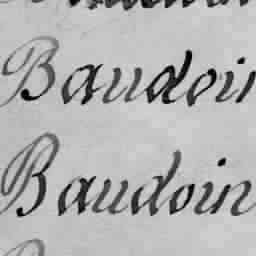 Baudoin
Baudoin